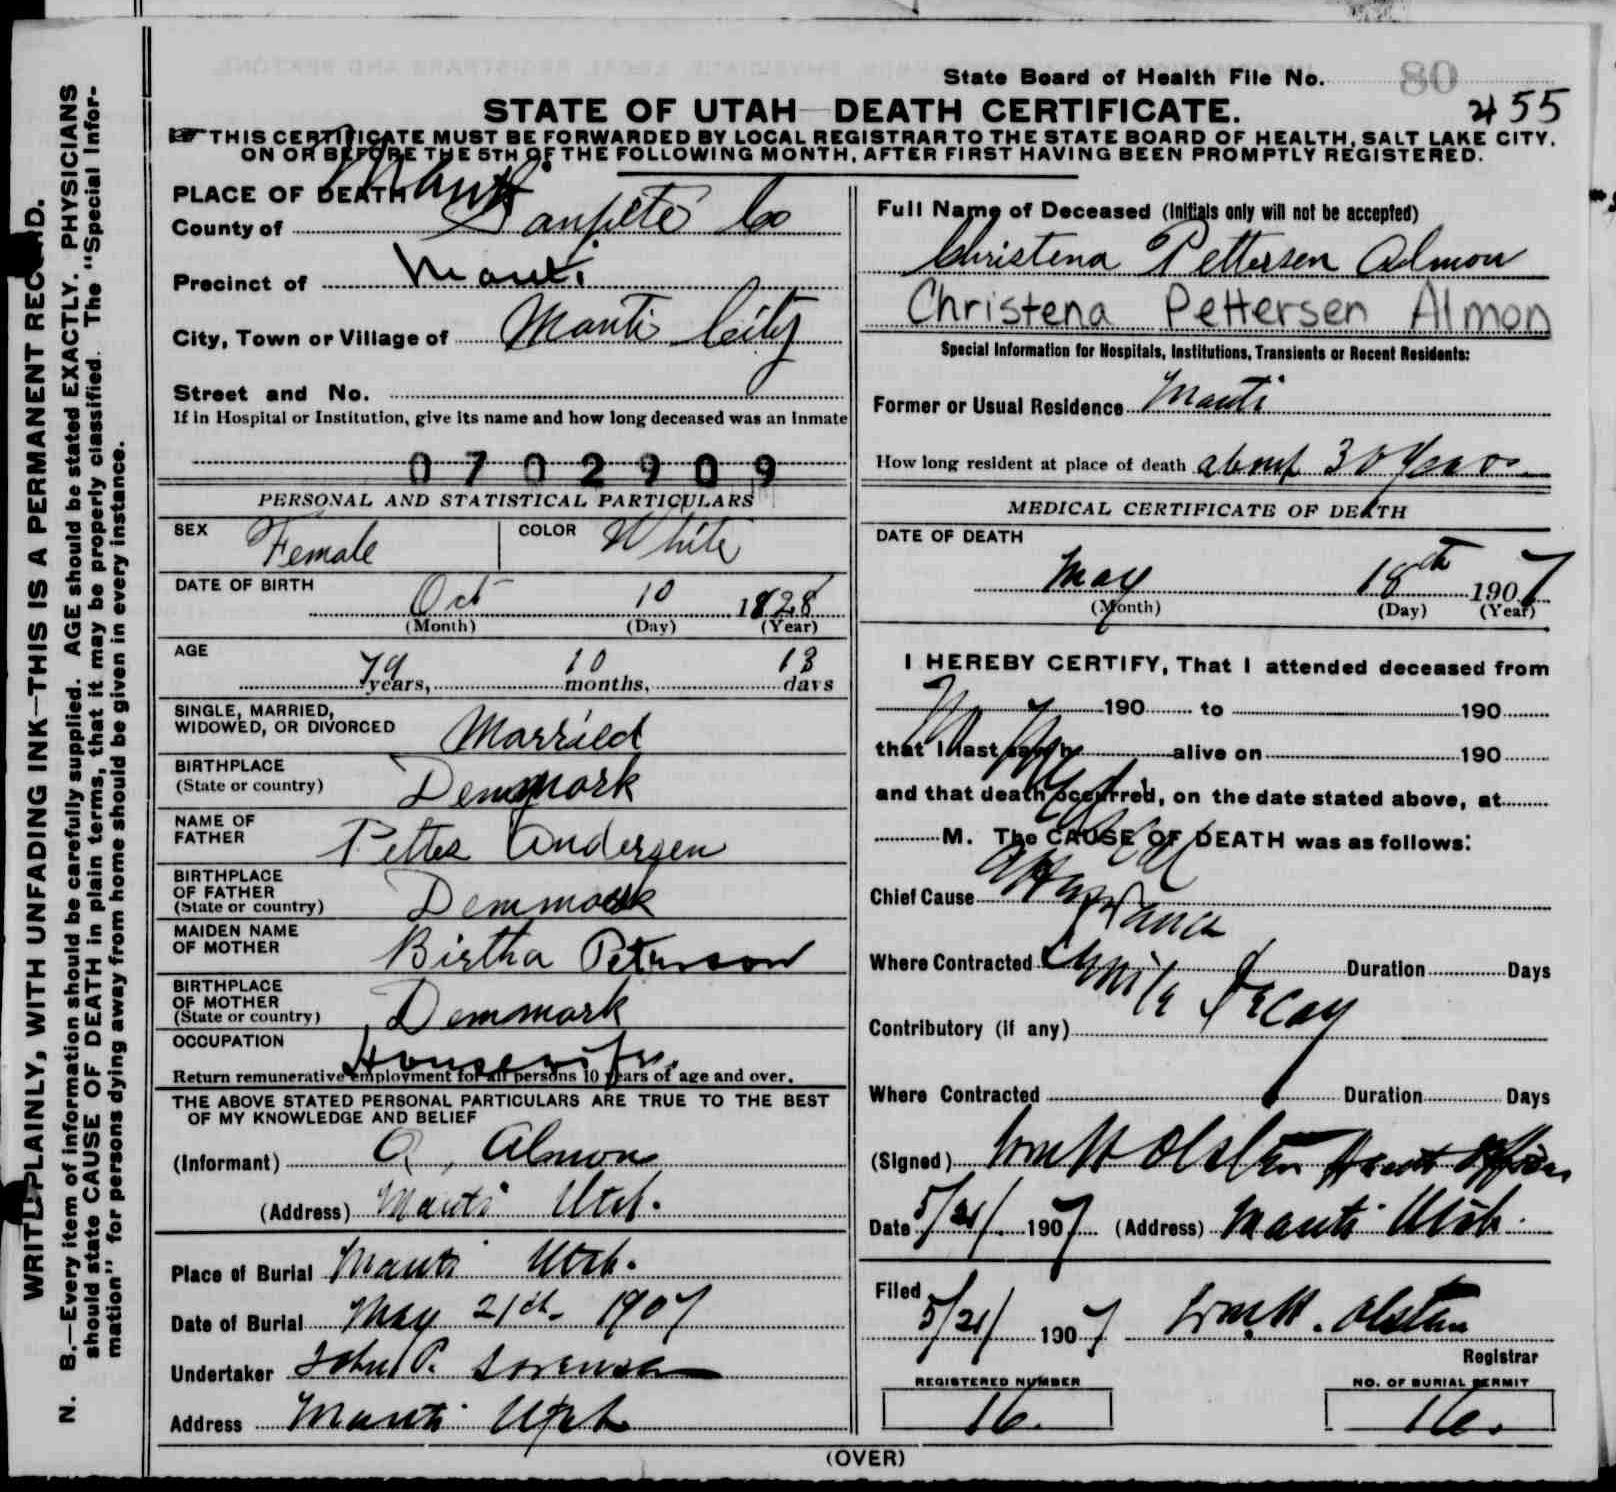 State Board of Health File No. 80
STATE OF UTAH—DEATH CERTIFICATE. 455
☞ THIS CERTIFICATE MUST BE FORWARDED BY LOCAL REGISTRAR TO THE STATE BOARD OF HEALTH, SALT LAKE CITY,
ON OR BEFORE THE 5TH OF THE FOLLOWING MONTH, AFTER FIRST HAVING BEEN PROMPTLY REGISTERED.
WRITE PLAINLY, WITH UNFADING INK—THIS IS A PERMANENT RECORD.
N. B.—Every item of information should be carefully supplied. AGE should be stated EXACTLY. PHYSICIANS
should state CAUSE OF DEATH in plain terms, that it may be properly classified. The "Special Infor-
mation" for persons dying away from home should be given in every instance.
PLACE OF DEATH Manti
County of Sanpete Co
Precinct of Manti
City, Town or Village of Manti City
Street and No.
If in Hospital or Institution, give its name and how long deceased was an inmate
0702909
PERSONAL AND STATISTICAL PARTICULARS
SEX Female COLOR White
DATE OF BIRTH
Oct 10 1828
(Month) (Day) (Year)
AGE
79 years, 10 months, 18 days
SINGLE, MARRIED,
WIDOWED, OR DIVORCED Married
BIRTHPLACE
(State or country) Denmark
NAME OF
FATHER Petter Andersen
BIRTHPLACE
OF FATHER
(State or country) Denmark
MAIDEN NAME
OF MOTHER Birtha Peterson
BIRTHPLACE
OF MOTHER
(State or country) Denmark
OCCUPATION Housewife
Return remunerative employment for all persons 10 years of age and over.
THE ABOVE STATED PERSONAL PARTICULARS ARE TRUE TO THE BEST
OF MY KNOWLEDGE AND BELIEF
(Informant) Almon
(Address) Manti Utah.
Place of Burial Manti Utah.
Date of Burial May 21th 1907
Undertaker John P. Sorensen
Address Manti Utah
Full Name of Deceased (Initials only will not be accepted)
Christena Pettersen Almon
Christena Pettersen Almon
Special Information for Hospitals, Institutions, Transients or Recent Residents:
Former or Usual Residence Manti
How long resident at place of death about 30 years
MEDICAL CERTIFICATE OF DEATH
DATE OF DEATH
May 18th 1907
(Month) (Day) (Year)
I HEREBY CERTIFY, That I attended deceased from
190 to 190
that I last saw h alive on 190
and that death occurred, on the date stated above, at
M. The CAUSE OF DEATH was as follows:
No Medical
Attendance
Chief Cause
Where Contracted Duration Days
Senile Decay
Contributory (if any)
Where Contracted Duration Days
(Signed) Wm H Olsten Health Officer
Date 5/21/ 1907 (Address) Manti Utah.
Filed
5/21/ 1907 Wm H. Olsten
Registrar
REGISTERED NUMBER NO. OF BURIAL PERMIT
16. 16.
(OVER)